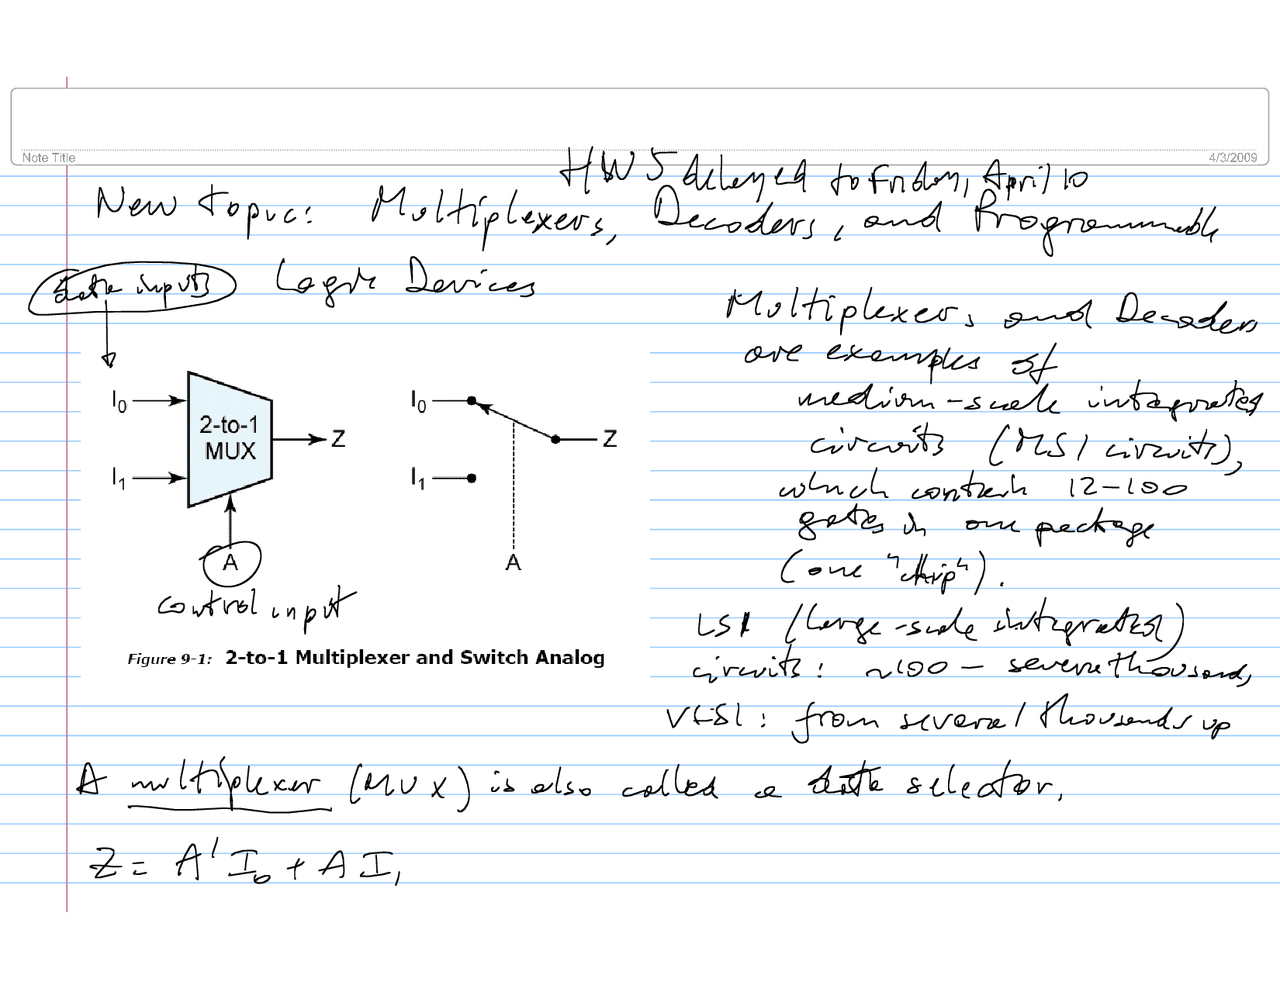 Note Title
4/3/2009
HW 5 delayed to Friday, April 10
New topic: Multiplexers, Decoders, and Programmable
Logic Devices
data inputs
I0
I1
2-to-1
MUX
Z
A
control input
I0
I1
Z
A
Figure 9-1: 2-to-1 Multiplexer and Switch Analog
Multiplexers and Decoders
are examples of
medium-scale integrated
circuits (MSI circuits),
which contain 12-100
gates in one package
(one "chip").
LSI (large-scale integrated)
circuits: ~100 - several thousand,
VLSI: from several thousands up
A multiplexer (MUX) is also called a data selector.
Z = A' I0 + A I1